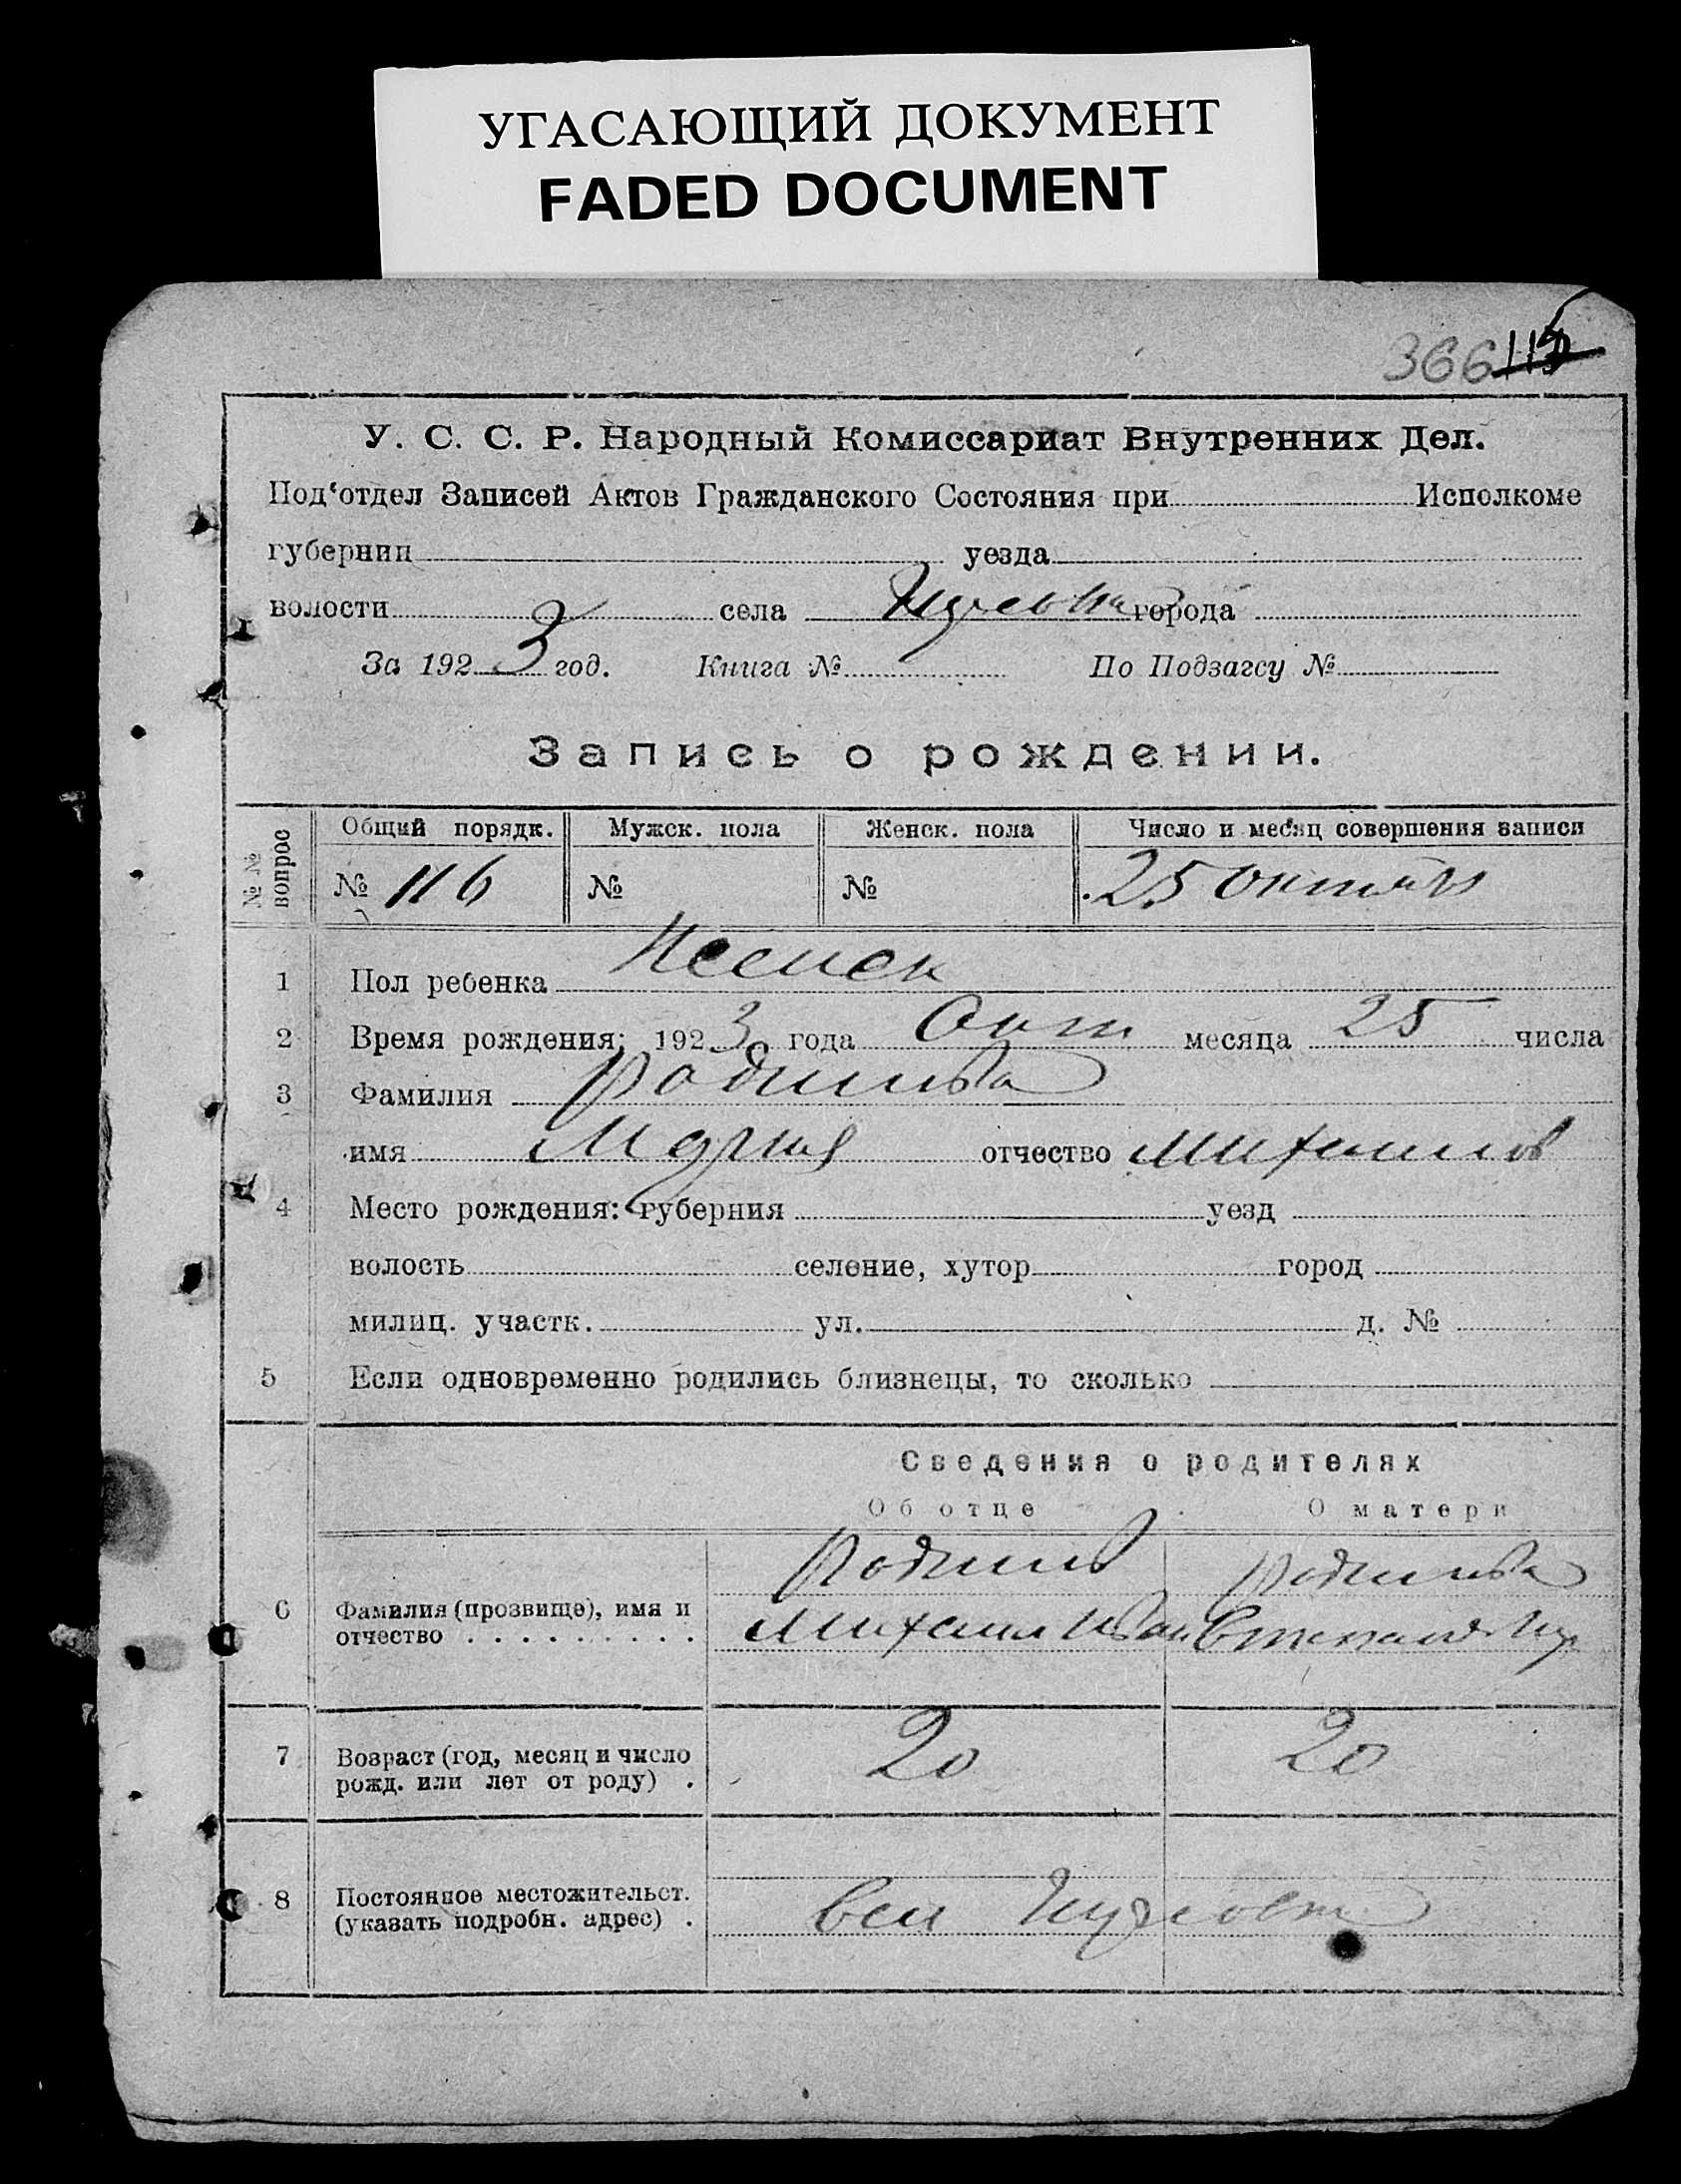 УГАСАЮЩИЙ ДОКУМЕНТ
FADED DOCUMENT
366 115
У. С. С. Р. Народный Комиссариат Внутренних Дел.
Под‘отдел Записей Актов Гражданского Состояния при Исполкоме
губернии уезда
волости села города
За 1923 год. Книга № По Подзагсу №
Запись о рождении.
№№ вопрос Общий порядк. Мужск. пола Женск. пола Число и месяц совершения записи
№ 116 № № 25 октября
1 Пол ребенка Женск
2 Время рождения: 1923 года Окт месяца 25 числа
3 Фамилия
имя Мария отчество Михайлов
4 Место рождения: губерния уезд
волость селение, хутор город
милиц. участк. ул. д. №
5 Если одновременно родились близнецы, то сколько
Сведения о родителях
Об отце О матери
6 Фамилия (прозвище), имя и
отчество . . . . . . . . . Михаил Иван
7 Возраст (год, месяц и число
рожд. или лет от роду) . 20 20
8 Постоянное местожительст.
(указать подробн. адрес) .